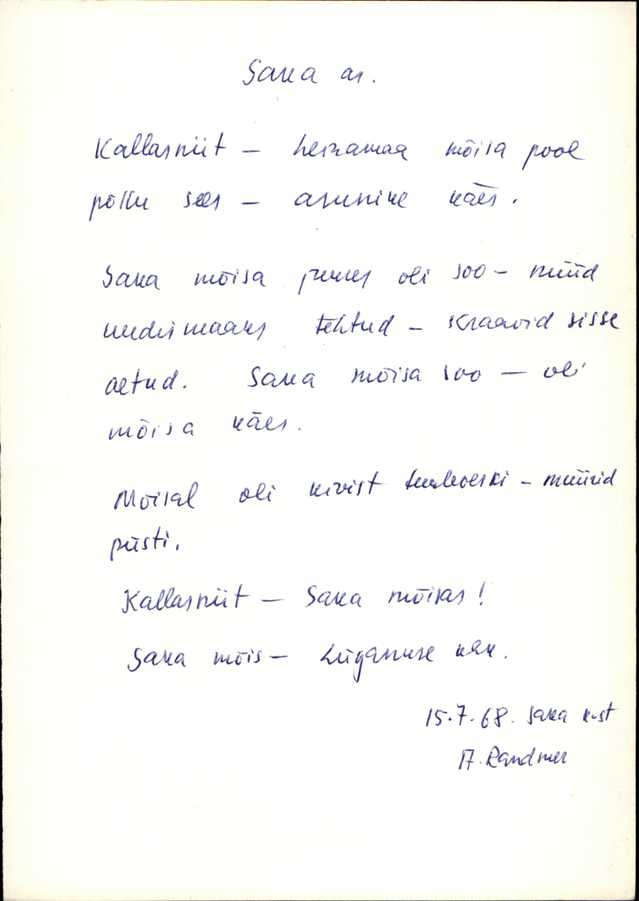 Saka as.
Kallasniit – heinamaa mõisa pool
põllu sees – asunike käes.
Saka mõisa juures oli soo – nüüd
uudismaaks tehtud – kraavid sisse
aetud. Saka mõisa soo – oli
mõisa käes.
Mõisal oli kivist tuuleveski – müürid
püsti.
Kallasniit – Saka mõisas!
Saka mõis – Lüganuse khk.
15.7.68. Saka k-st
A. Randmer